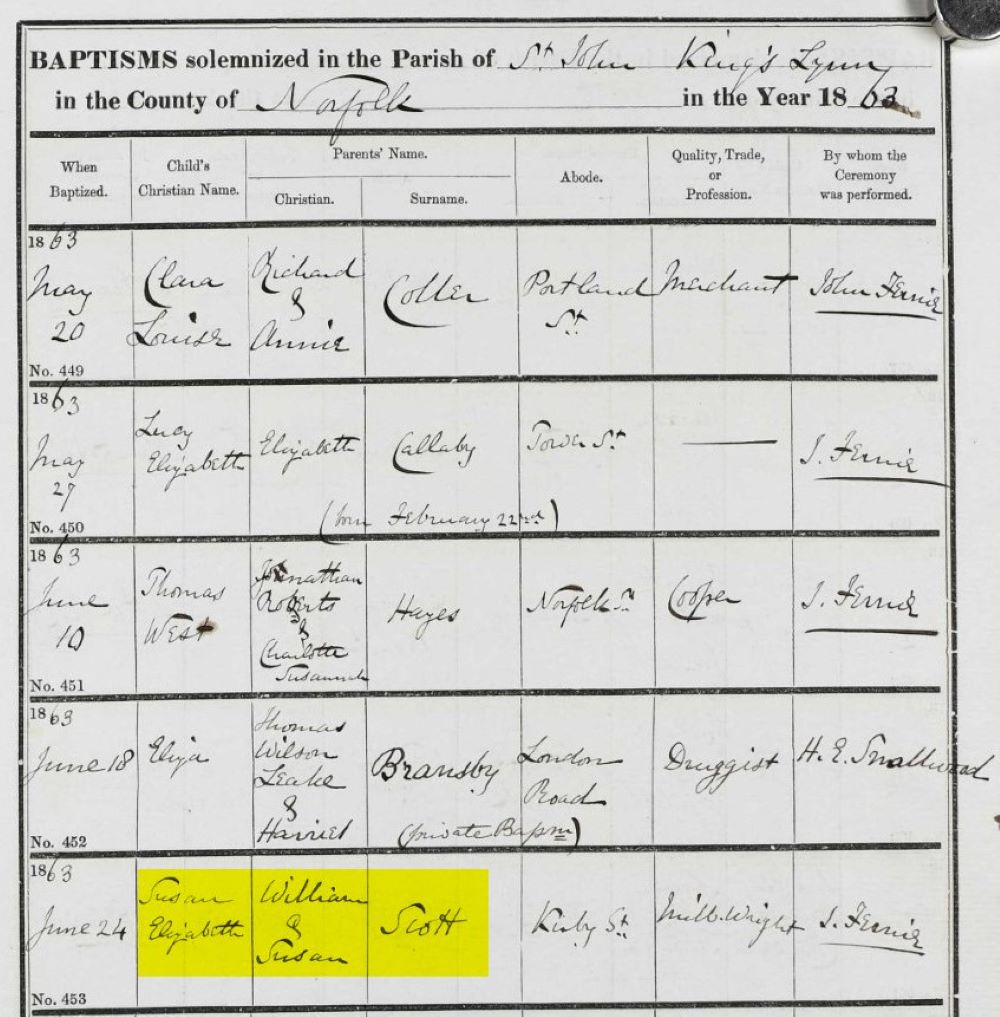 BAPTISMS solemnized in the Parish of St. John King's Lynn
in the County of Norfolk in the Year 1863
When Baptized.
Child's Christian Name.
Parents' Name.
Christian.
Surname.
Abode.
Quality, Trade, or Profession.
By whom the Ceremony was performed.
1863
May 20
Clara Louise
Richard & Annie
Coller
Portland St.
Merchant
John Fernie
No. 449
1863
May 27
Lucy Elizabeth
Elizabeth
Callaby
Tower St.
J. Fernie
(born February 22nd)
No. 450
1863
June 10
Thomas West
Jonathan Roberts & Charlotte Susannah
Hayes
Norfolk St.
Cooper
J. Fernie
No. 451
1863
June 18
Eliza
Thomas Wilson Leake & Harriet
Bransby
London Road
Druggist
H. E. Smallwood
(private Bapsm)
No. 452
1863
June 24
Susan Elizabeth
William & Susan
Scott
Kirby St.
Mill-Wright
J. Fernie
No. 453